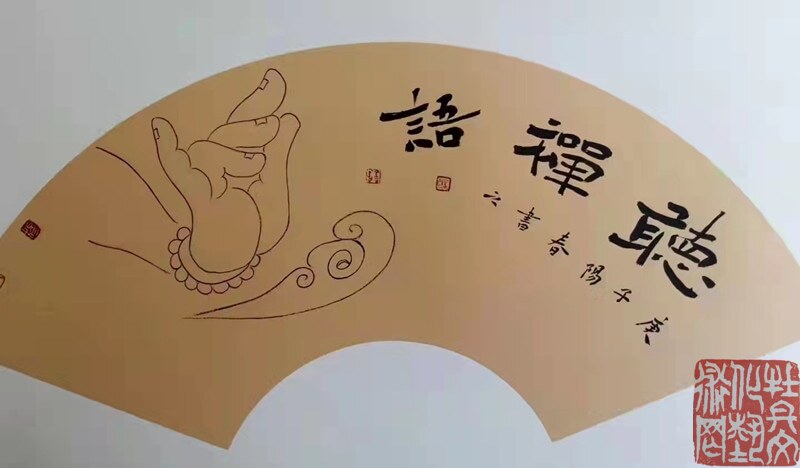 聽禪語
庚子陽春書之